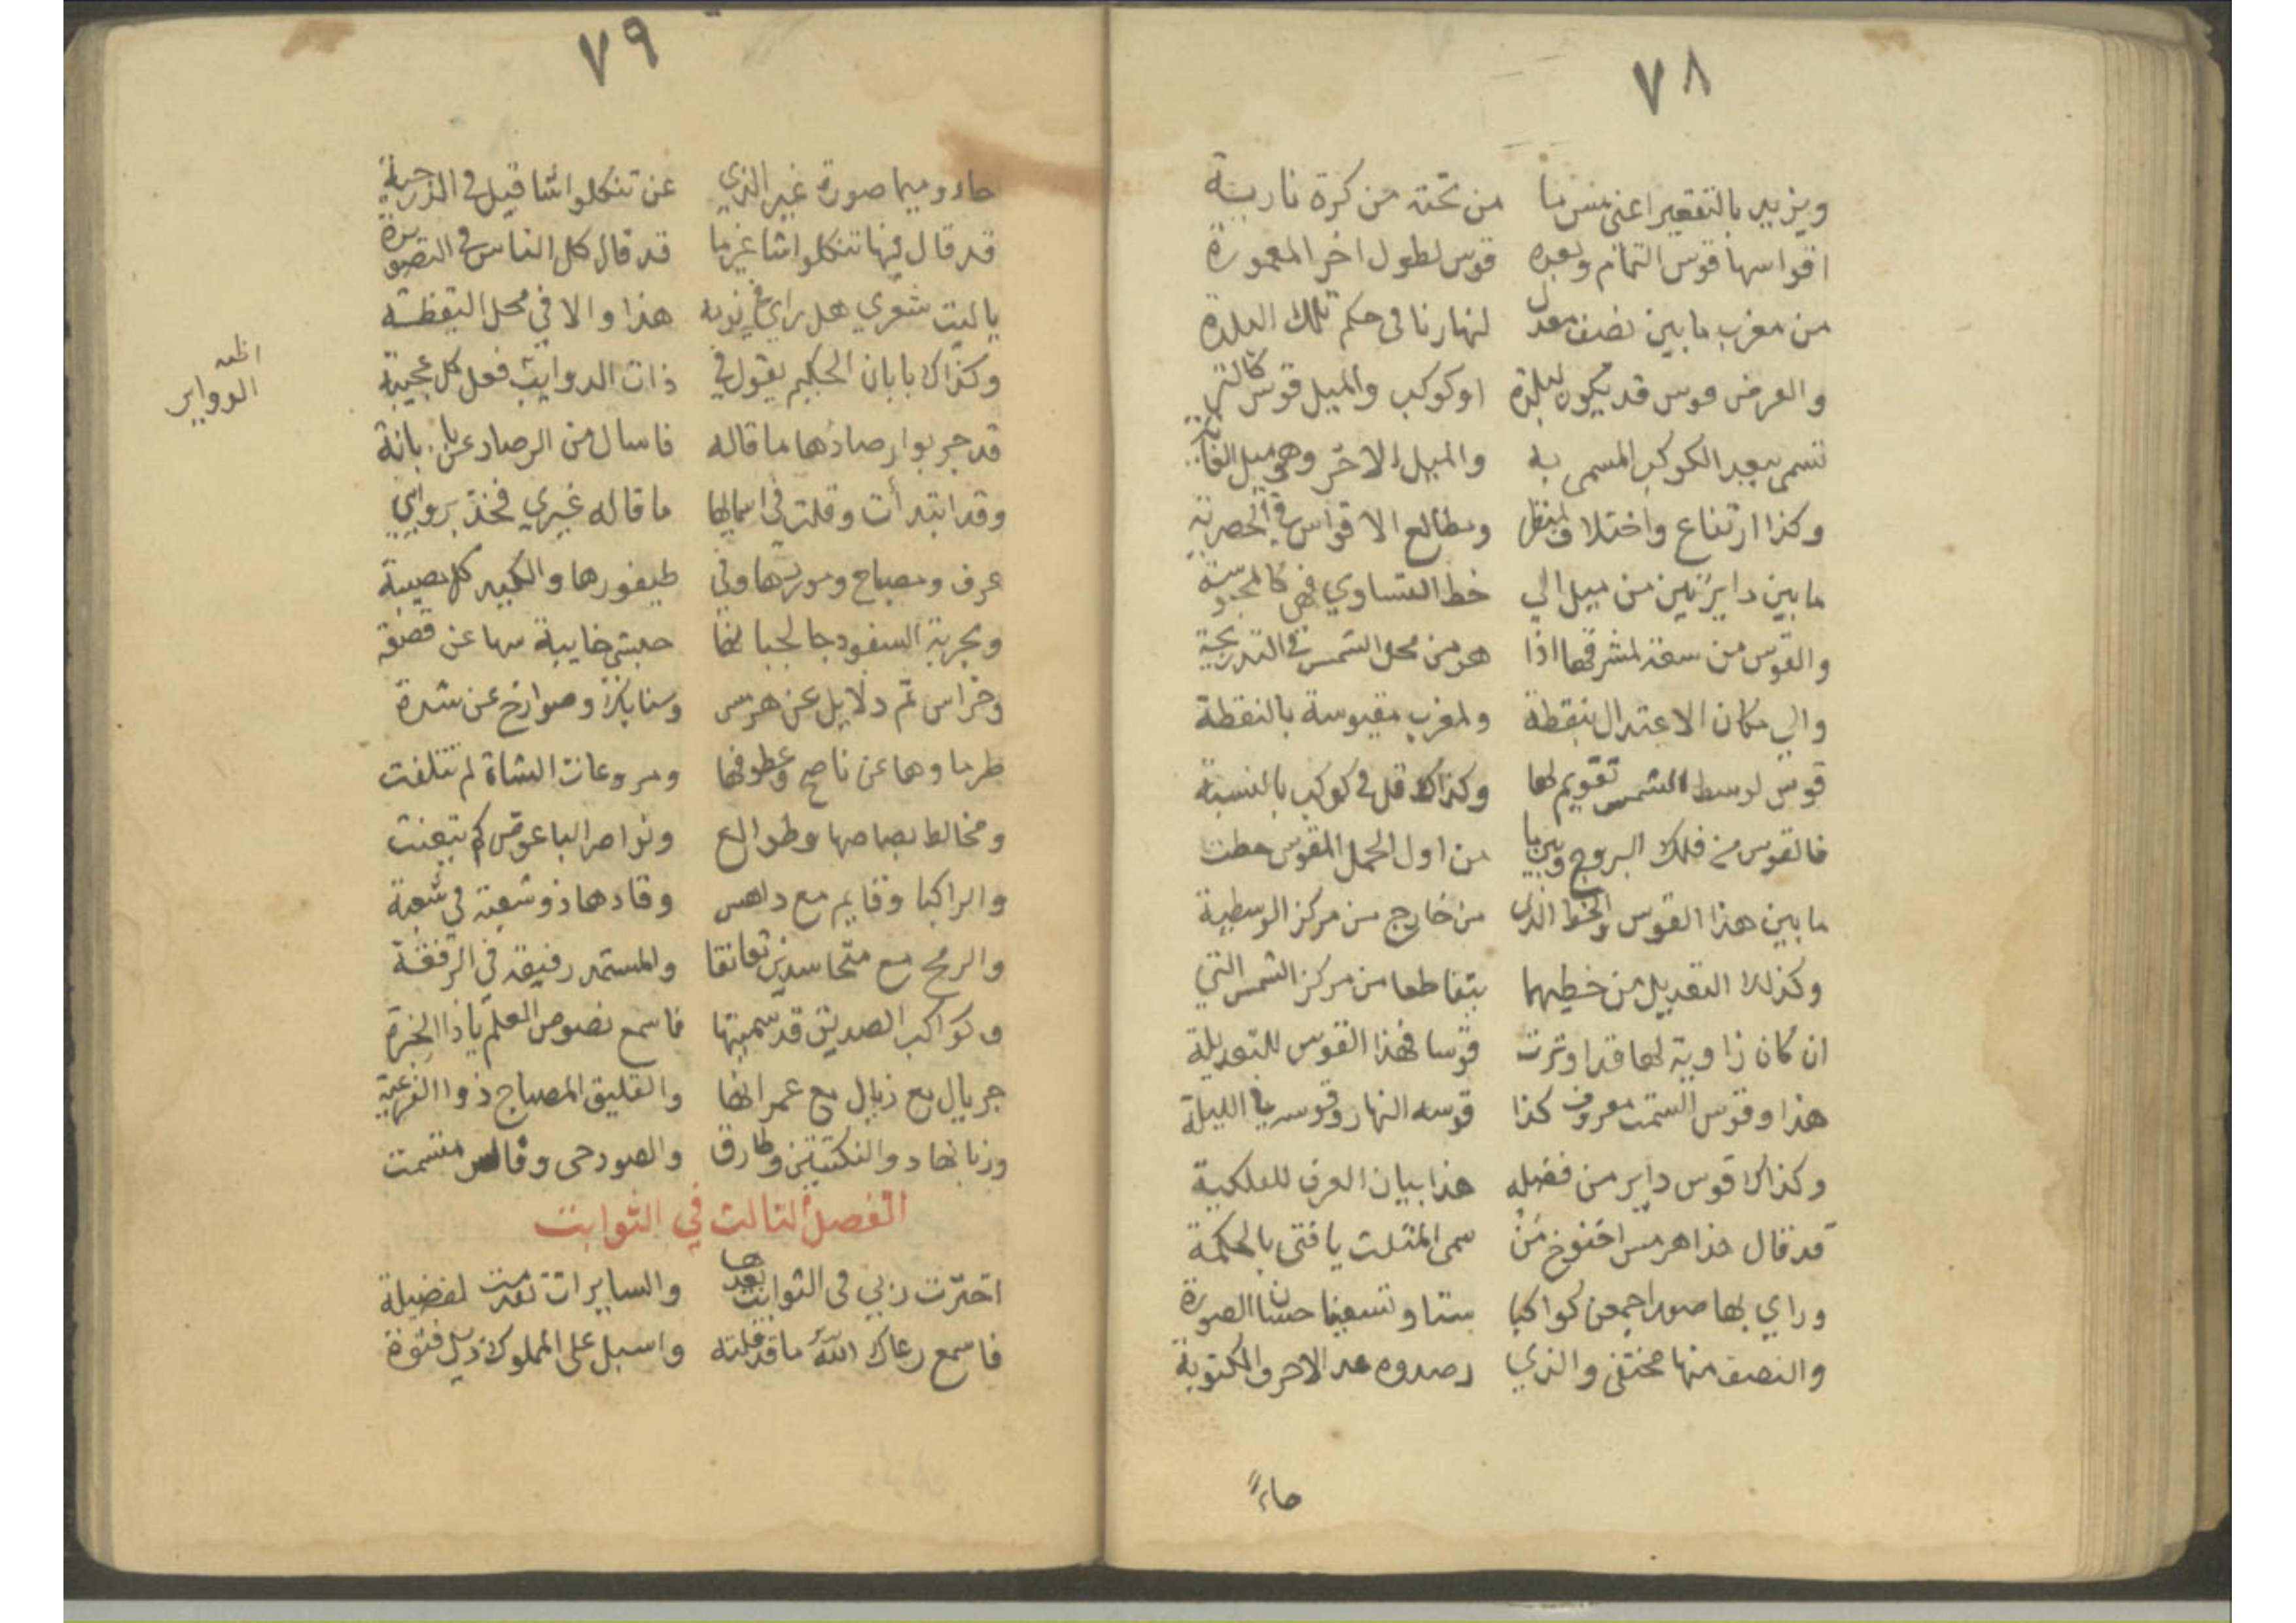 ٧٨
ويزيد بالتقعير اعنى من تحته من كرة نارية
اقواسها قوس التمام وبعده قوس لطول اخر المعمورة
من مغرب ما بين نصف معدل لنهارنا فى حكم تلك البلدة
والعرض قوس قد يكون لبلدة او كوكب والميل قوس كالتي
تسمى ببعد الكوكب المسمى به والميل الاخر وهو ميل
وكذا ارتفاع واختلاف لمنظر ومطالع الاقواس في
ما بين دايرتين من ميل الي خط التساوي فهي
والقوس من سعة لمشرقها اذا هو من محل الشمس في
والي مكان الاعتدال بنقطة ولمغرب مقيوسة بالنقطة
قوس لوسط الشمس تقويم لها وكذاك قل فى كوكب بالنسبة
فالقوس من فلك البروج وبين ما من اول الحمل المقوس حطت
ما بين هذا القوس والخط الذى من خارج من مركز الوسطية
وكذلك التعديل من خطيهما بتقاطعا من مركز الشمس التي
ان كان زاوية لها قد اوترت قوسا فهذا القوس للتعديلة
هذا وقوس السمت معروف كذا قوسه النهار وقوسه في الليلة
وكذاك قوس داير من فضله هذا بيان العرف للفلكية
قد قال هذا هرمس اخنوخ من سمى المثلث يا فتى بالحكمة
وراي بها صورا جمعن كواكبا ستا وتسعينا حسان الصورة
والنصف منها مختفى والذي رصدوه عد الاحرف المكتوبة
حاءً
٧٩
حاء وميما صورة غير الذي عن تنكلوا اشا قيل في الدرجية
قد قال فيها تنكلوا اشا غير ما قد قال كل الناس في التصويرة
يا ليت شعري هل راي في نومه هذا والا في محل اليقظة
وكذاك بابان الحكيم يقول في ذات الدوايب فعل كل عجيبة
قد جربوا رصادها ما قاله فاسال من الرصاد عن بابانة
وقد ابتدأت وقلت في اسمالها ما قاله غيري فخذ بروايتي
عرف ومصباح ومورثها وفي طيفورها والكبير كل مصيبة
وبجربة السفود جا لجبا لها حبشي خايبة سها عن قصفه
وخراس تم دلايل عن هرمس وسنابك وصوارخ عن شدة
طرما وها عن ناصح وعطوفها ومروعات الشاة لم تتلفت
ومخالط بصاصها وطوالع ونواصر الباعوص كم تبعنت
والراكبا وقايم مع داهس وقادها ذو شعبة في شعبة
والرمح مع متحاسدين تعانقا والمستمد رفيقه في الرفقة
وكواكب الصديق قد سميتها فاسمع نصوص المعلم يا ذا الخبرة
جريال مع زبال مع عمرانها والقليق المصباح ذوا
وزنانها د والنكتتين وطارق والصور حى وفالس مقسمت
الفصل الثالث في الثوابت
اخترت ربي في الثوابت بعدها والسايرات تقدمت لفضيلة
فاسمع رعاك الله ما قد قلته واسبل على المملوك ذيل فتوة
الدواير